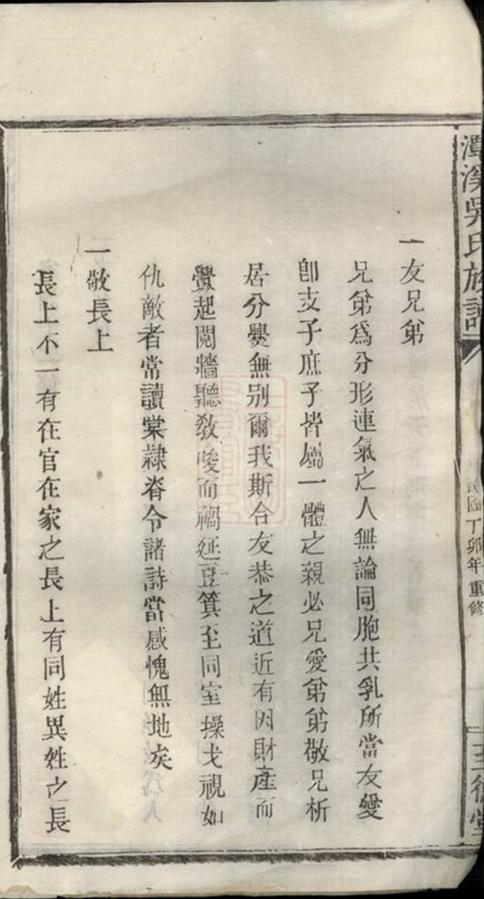 潭溪吳氏族譜
民國丁卯年重修
至德堂
一友兄弟
兄弟爲分形連氣之人無論同胞共乳所當友愛
卽支子庶子皆屬一體之親必兄愛弟弟敬兄析
居分爨無别爾我斯合友恭之道近有因財產而
釁起鬩牆聽教唆而禍延荳箕至同室操戈視如
仇敵者常讀棠隸脊令諸詩當感愧無地矣
一敬長上
長上不一有在官在家之長上有同姓異姓之長